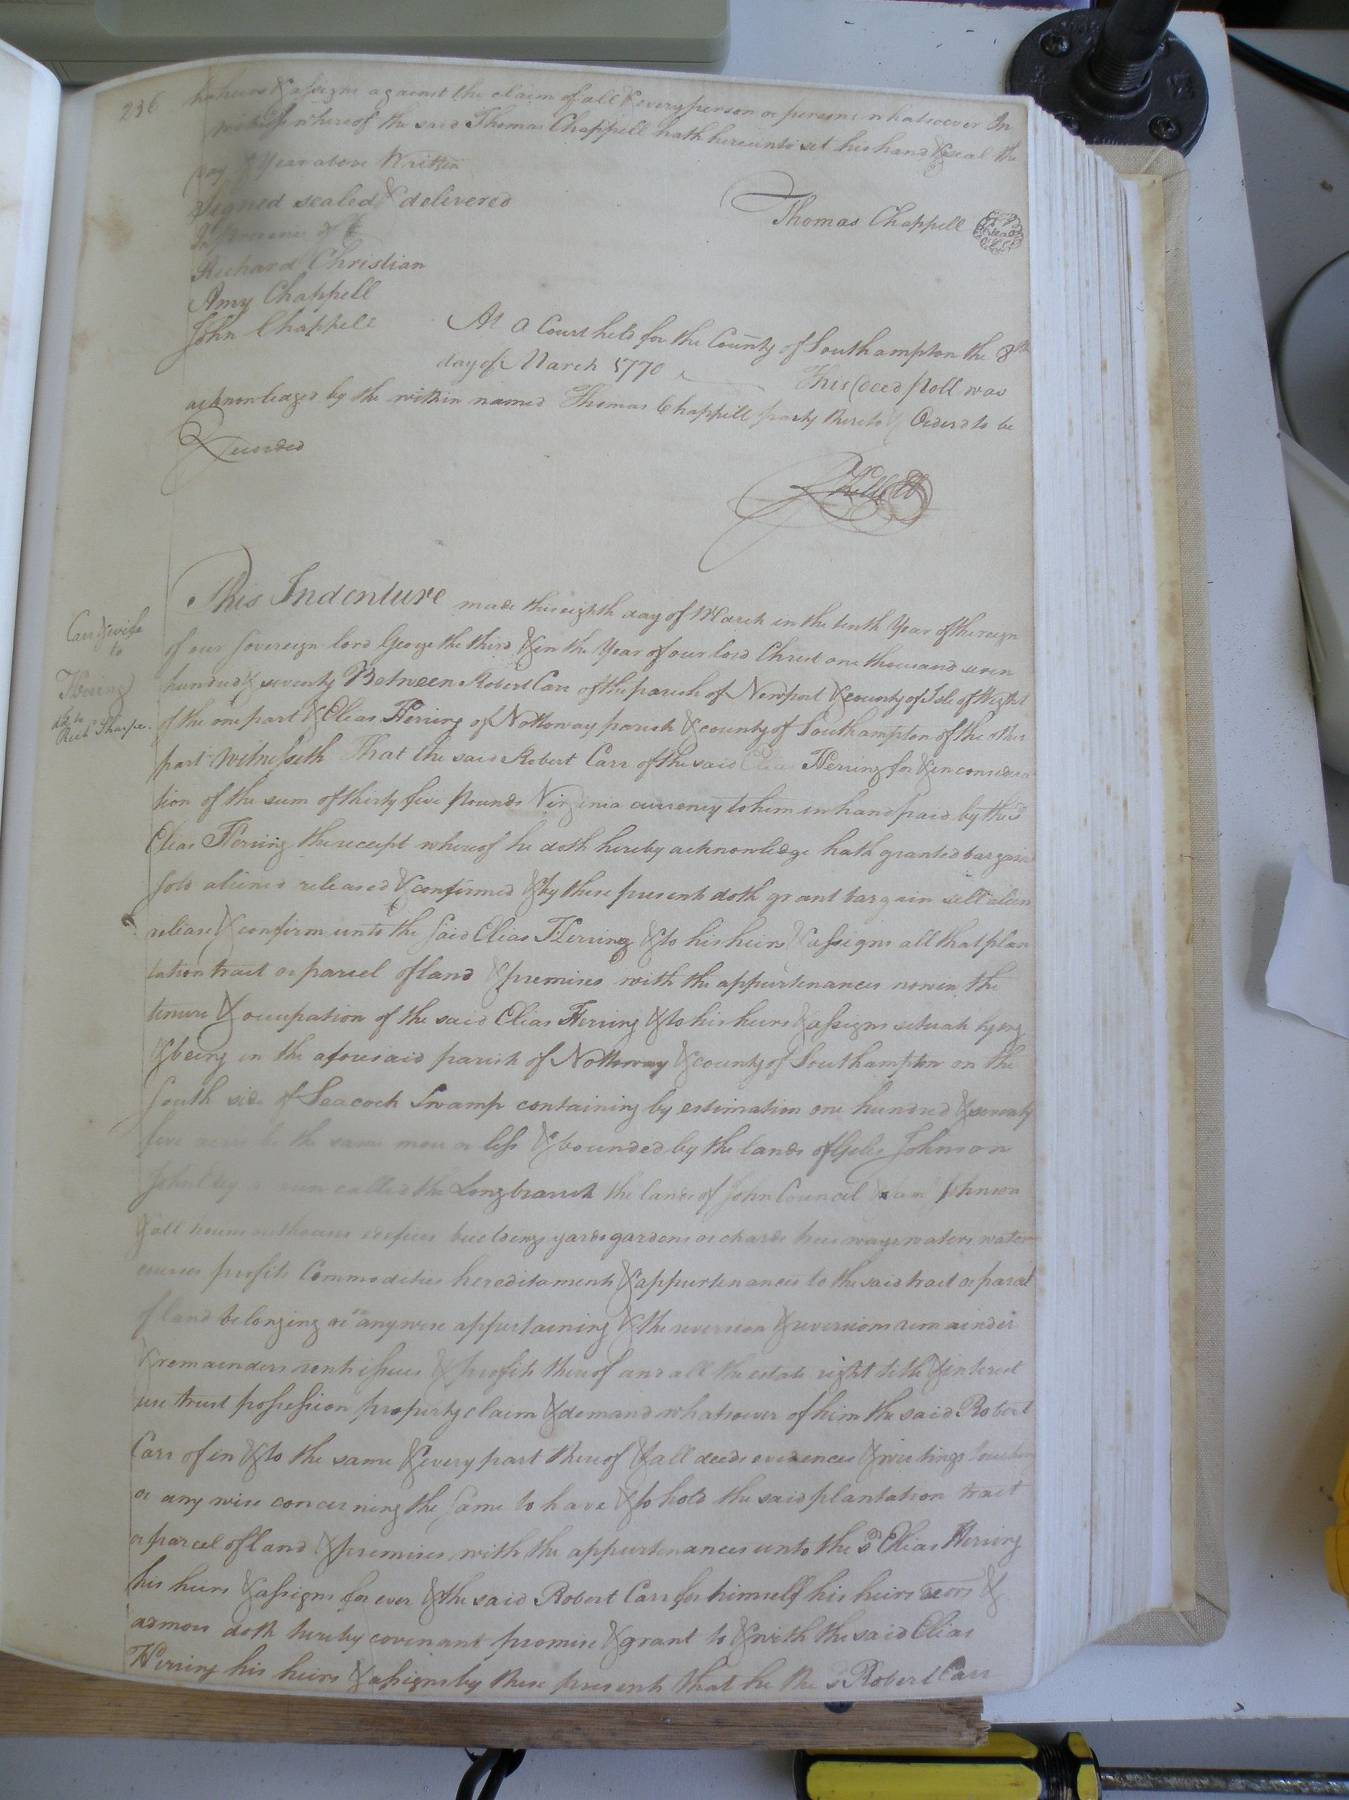 236
his heirs & assigns against the claim of all & every person or persons whatsoever In
witness whereof the said Thomas Chappell hath hereunto set his hand & seal the
day & Year above Written
Signed sealed & delivered
In Presence of
Thomas Chappell
Seal
Richard Christian
Amy Chappell
John Chappell
At a Court held for the County of Southampton the 8th
day of March 1770
This Deed Poll was
acknowledged by the within named Thomas Chappell party thereto & Ordered to be
Recorded
Carr & wife
to
Herring
This Indenture made this eighth day of March in the tenth Year of the reign
of our Sovereign lord George the third & in the Year of our lord Christ one thousand seven
hundred & seventy Between Robert Carr of the parish of Newport & county of Isle of Wight
of the one part & Elias Herring of Nottoway parish & county of Southampton of the other
part Witnesseth That the said Robert Carr of the said Elias Herring for & in considera
tion of the sum of thirty five Pounds Virginia currency to him in hand paid by the sd
Elias Herring the receipt whereof he doth hereby acknowledge hath granted bargained
sold aliened released & confirmed & by these present doth grant bargain sell alien
release & confirm unto the said Elias Herring & to his heirs & assigns all that plan
tation tract or parcel of land & premises with the appurtenances now in the
tenure & occupation of the said Elias Herring & to his heirs & assigns situate lying
& being in the aforesaid parish of Nottoway & county of Southampton on the
South side of Seacock Swamp containing by estimation one hundred & seventy
five acres be the same more or less & bounded by the lands of Giles Johnson
a run called the Long branch the lands of John Council Johnson
& all houses outhouses edifices buildings yards gardens orchards trees ways waters water
courses profits Commodities hereditaments & appurtenances to the said tract or parcel
of land belonging or in anywise appertaining & the reversion & reversions remainder
& remainders rents issues & profits thereof and all the estate right title & interest
use trust possession property claim & demand whatsoever of him the said Robert
Carr of in & to the same & every part thereof & all deeds evidences & writings touching
or any wise concerning the same to have & to hold the said plantation tract
or parcel of land & premises with the appurtenances unto the sd Elias Herring
his heirs & assigns for ever & the said Robert Carr for himself his heirs &
admors doth hereby covenant promise & grant to & with the said Elias
Herring his heirs & assigns by these presents that he the sd Robert Carr